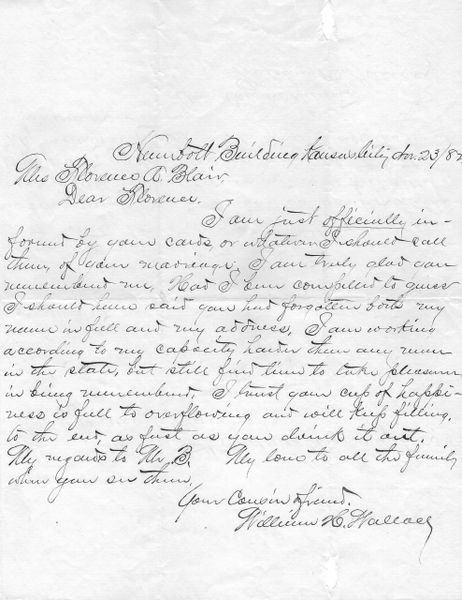 Humbolt Building Kansas City Nov. 23/82
Mrs Florence A. Blair,
Dear Florence.
I am just officially in-
formed by your cards, or whatever I should call
them, of your marriage. I am truly glad you
remembered me. Had I been compelled to guess
I should have said you had forgotten both my
name in full and my address. I am working
according to my capacity harder than any man
in the state, but still find time to take pleasure
in being remembered. I trust your cup of happi-
ness is full to overflowing and will keep filling,
to the end, as fast as you drink it out.
My regards to Mr. B. My love to all the family
when you see them.
Your Cousin & friend.
William H. Wallace